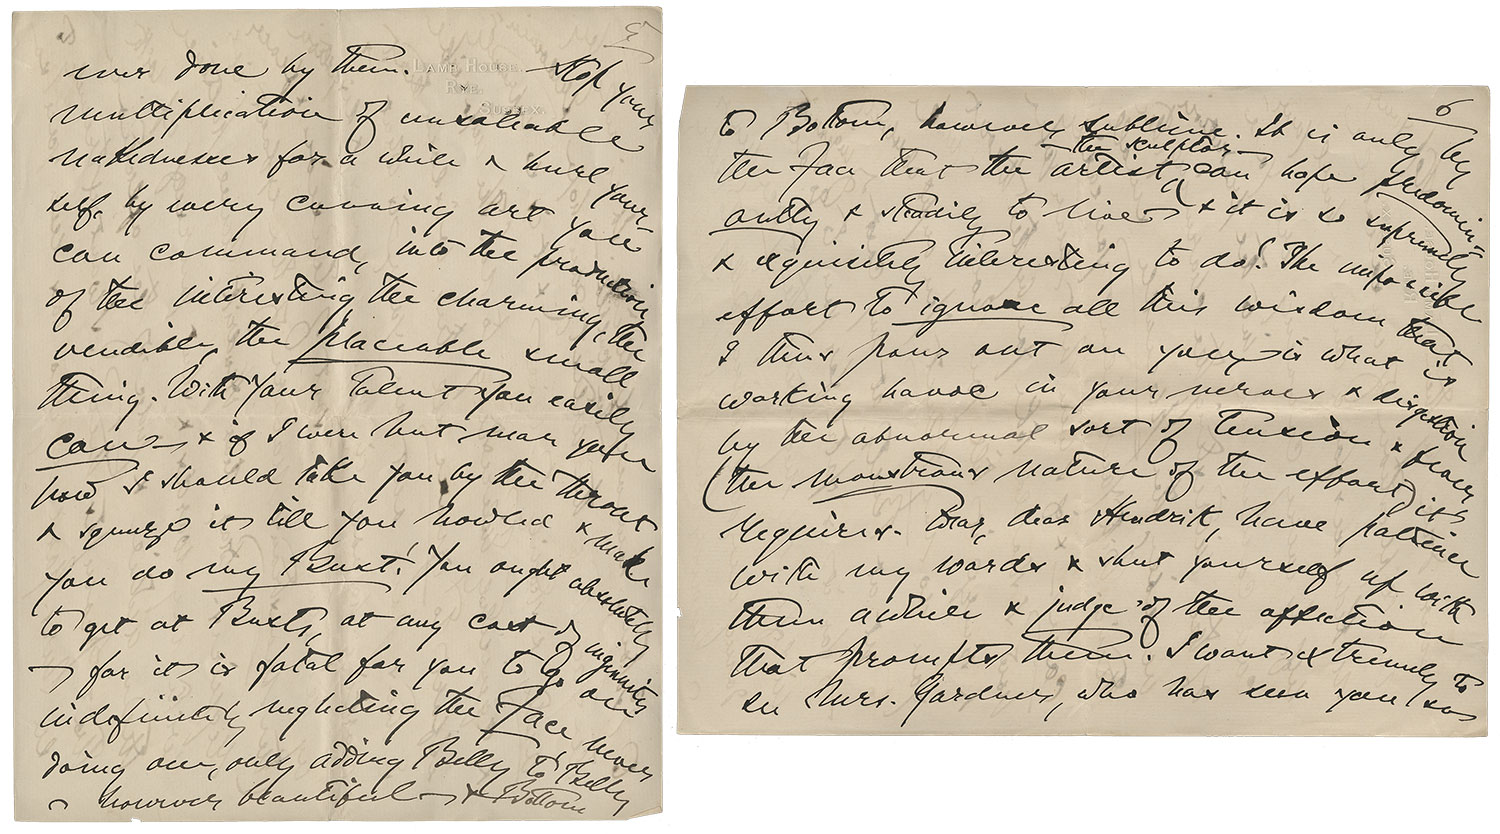 5
LAMB HOUSE,
RYE,
SUSSEX.
ever done by them. — Stop your
multiplication of unsaleable
nakednesses for a while & hurl your-
self, by every cunning art you
can command, into the production
of the interesting, the charming, the
vendible, the placeable small
thing. With your talent you easily
can — & if I were but near you
now I should take you by the throat
& squeeze it till you howled & make
you do my Bust! You ought absolutely
to get at Busts, at any cost of ingenuity
— for it is fatal for you to go on
indefinitely neglecting the Face, never
doing one, only adding Belly to Belly
— however beautiful — & Bottom
6
to Bottom, however sublime. It is only by
the Face that the artist — the sculptor — can hope predomin-
antly & steadily to live — & it is so supremely
& exquisitely interesting to do! The impossible
effort to ignore all this wisdom that
I thus pour out on you is what is
working havoc in your nerves & digestion
by the abnormal sort of tension &
(the monstrous nature of the effort) it
requires. Dear, dear Hendrik, have patience
with my words & shut yourself up with
them awhile & judge of the affection
that prompts them. I want extremely to
see Mrs. Gardner, who has seen you (so